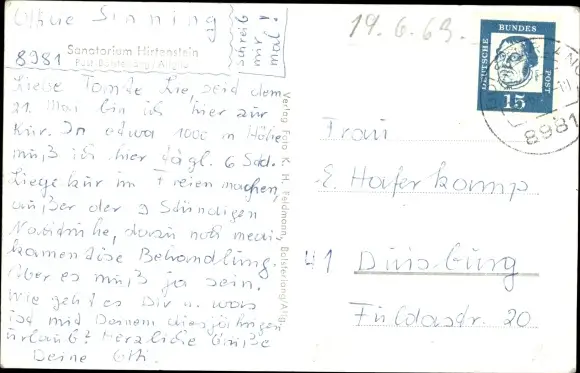 schreib
mir
mal!
8981
Sanatorium Hirtenstein
Post Bolsterlang/Allgäu
Liebe Tante Lie, seid dem
21. Mai bin ich hier zur
Kur. In etwa 1000 m Höhe
muß ich hier tägl. 6 Std.
Liegekur im Freien machen,
außer der 9 Stündigen
Nachtruhe, dazu noch medi-
kamentöse Behandlung.
Aber es muß ja sein.
Wie geht es Dir u. was
ist mit Deinem diesjährigen
Urlaub? Herzliche Grüße
Deine
Verlag Foto K. H. Feldmann, Bolsterlang/Allg.
19. 6. 63.
DEUTSCHE BUNDES POST
15
8981
Frau
E. Haferkamp
41 Duisburg
Fuldastr. 20